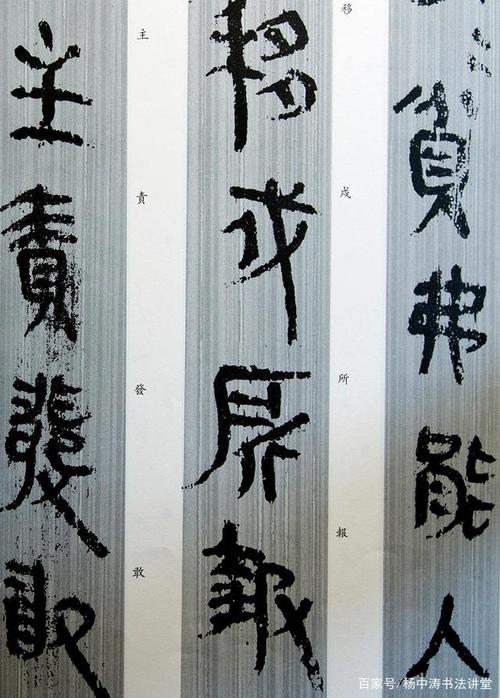 貧弗能入
移戍所報
移戍所報
主責發敢
主責發敢
百家号/杨中涛书法讲堂